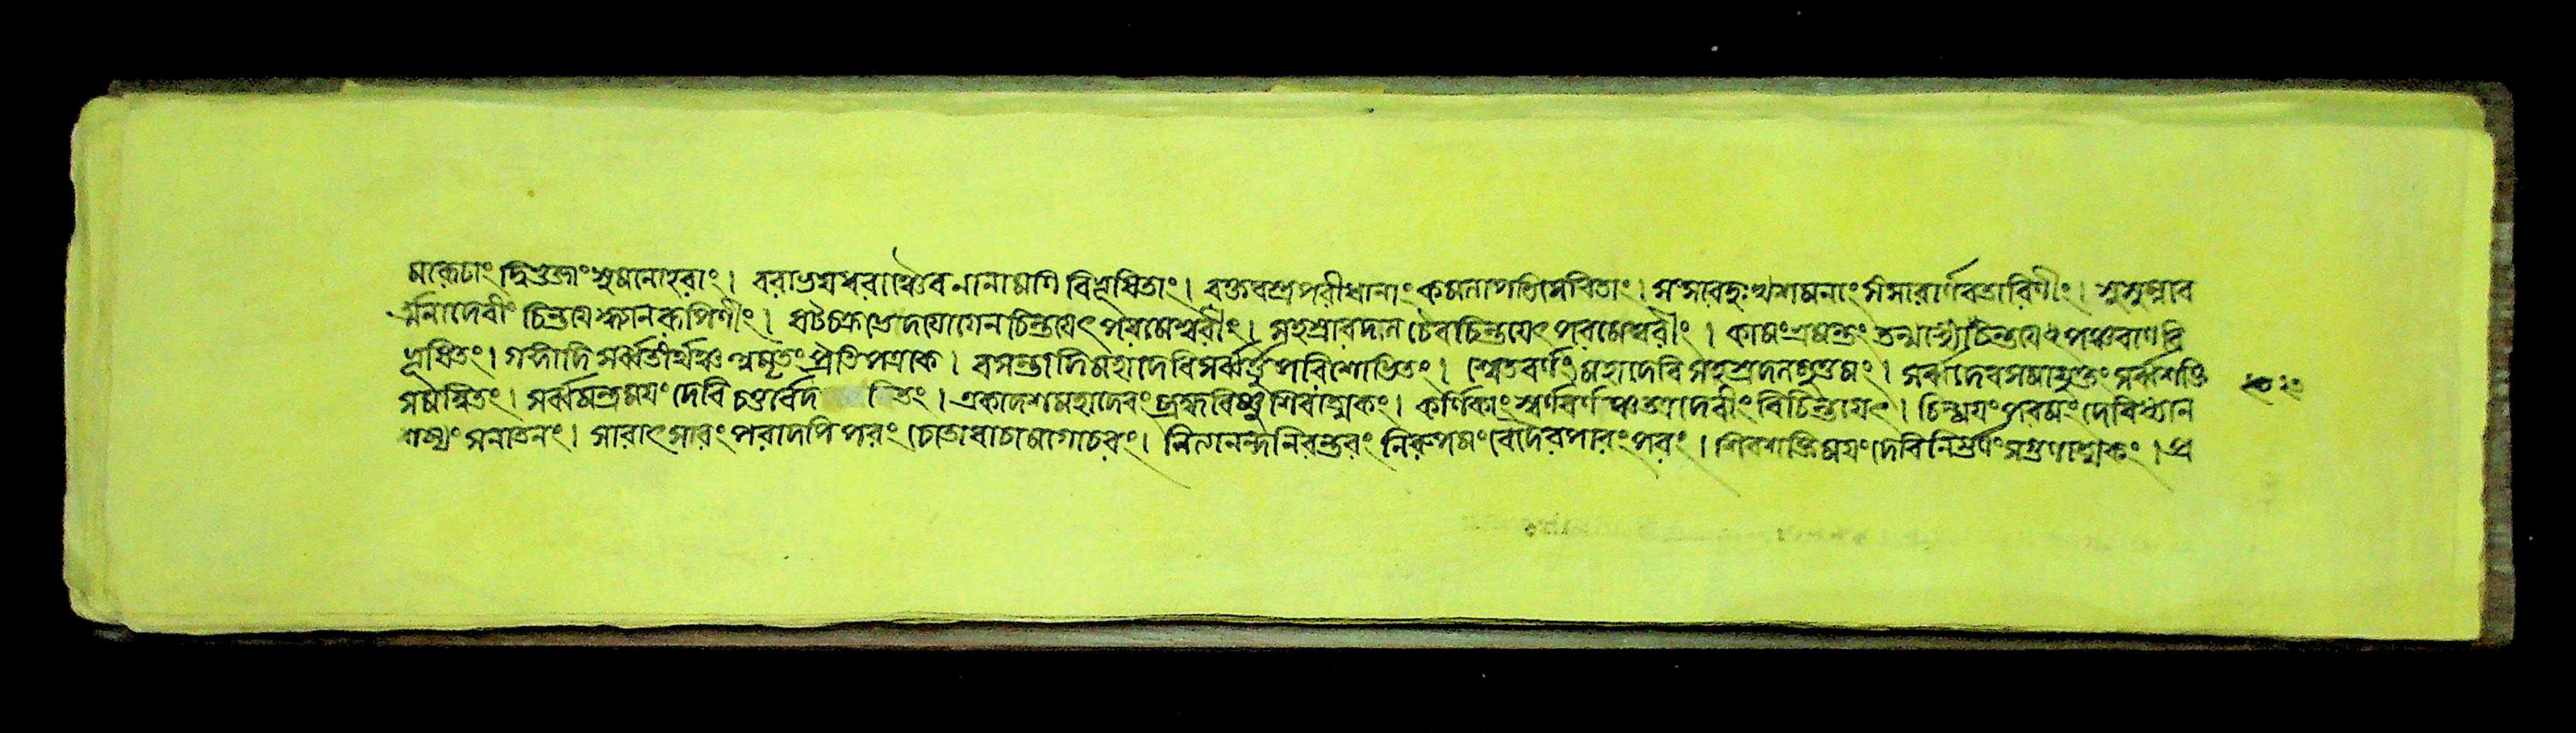 মকেটাং দ্বিভুজাং সুমনোহরাং। বরাভয়ধরাঞ্চৈব নানামণি বিভূষিতাং। রক্তবস্ত্রপরীধানাং কমলাপতিসেবিতাং। সংসারদুঃখশমনাং সংসারার্ণবতারিণীং। সুসুম্নাব
র্ত্মনাদেবীং চিন্তয়ে জ্ঞানরূপিণীং। ষট্চক্রভেদযোগেন চিন্তয়েৎ পরমেশ্বরীং। সহস্রারদলে চৈব চিন্তয়েৎ পরমেশ্বরীং। পঞ্চবাণবি
ভূষিতং। গঙ্গাদি সর্ব্বতীর্থঞ্চ প্রতিপত্রকে। বসন্তাদিমহাদেবি সর্ব্বর্ত্তুপরিশোভিতং। শ্বেতবর্ণং মহাদেবি সহস্রদলমুত্তমং। সর্ব্বদেবসমাযুক্তং সর্ব্বশক্তি
সমন্বিতং। সর্ব্বমন্ত্রময়ং দেবি চতুর্বেদ তং। একাদশমহাদেবং ব্রহ্মবিষ্ণুশিবাত্মকং। কর্ণিকাং স্বর্ণবর্ণাঞ্চ তত্র দেবীং বিচিন্তয়েৎ। চিন্ময়ং পরমং দেবি ধ্যান
গম্যং সনাতনং। সারাৎসারং পরাদপি পরং গোচরং। নিত্যানন্দনিরন্তরং নিরুপমং বেদৈরপারং পরং। শিবশক্তিময়ং দেবি নির্গুণং সগুণাত্মকং। প্র